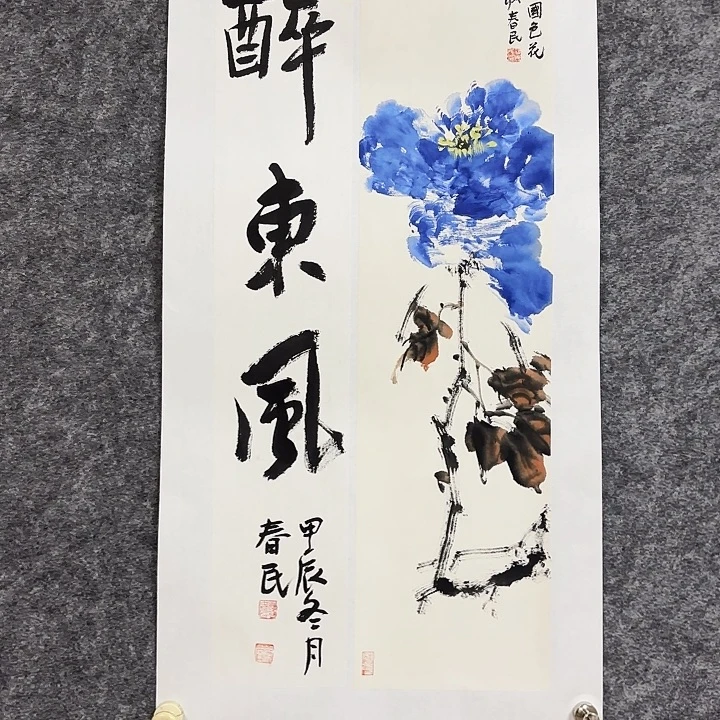 國色花
春民
醉
東
風
甲辰冬月
春民